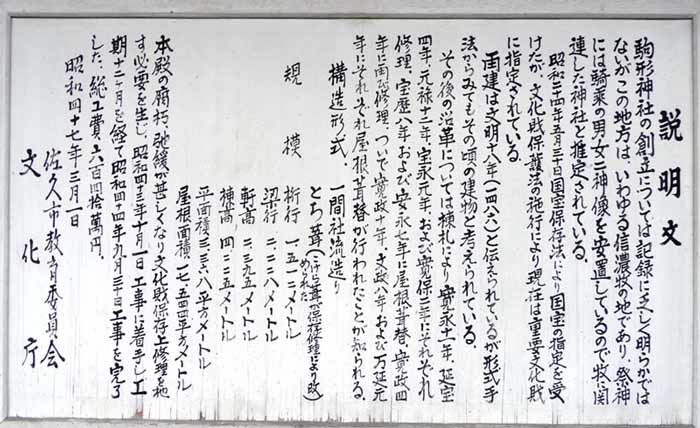 説明文
駒形神社の創立については記録に乏しく明らかでは
ないがこの地方は、いわゆる信濃牧の地であり、祭神
には騎乗の男・女二神像を安置しているので牧に関
連した神社と推定されている。
昭和二十四年五月三十日国宝保存法により国宝の指定を受
けたが、文化財保護法の施行により現在は重要文化財
に指定されている。
再建は文明十八年(一四八六)と伝えられているが形式手
法からみてもその頃の建物と考えられている。
その後の沿革については棟札により、寛永十一年、延宝
四年、元禄十二年、宝永元年、および寛保三年にそれぞれ
修理、宝暦八年および安永七年に屋根葺替、寛政四
年に再び修理、ついで寛政十年、文政八年および万延元
年にそれぞれ屋根葺替が行われたことが知られる。
構造形式、一間社流造り
とち葺(こけら葺が保存修理により改められた)
規模
桁行 一・五一二メートル
梁行 一・二二八メートル
軒高 二・三九五メートル
棟高 四・二二五メートル
平面積 三・三六八平方メートル
屋根面積 一七・五四四平方メートル
本殿の腐朽、弛緩が甚しくなり文化財保存上修理を施
す必要を生じ、昭和四十三年十月一日工事に着手し工
期十二ヶ月を経て昭和四十四年九月三十日工事を完了
した、総工費六百四拾萬円。
昭和四十七年三月一日
佐久市教育委員会
文化庁